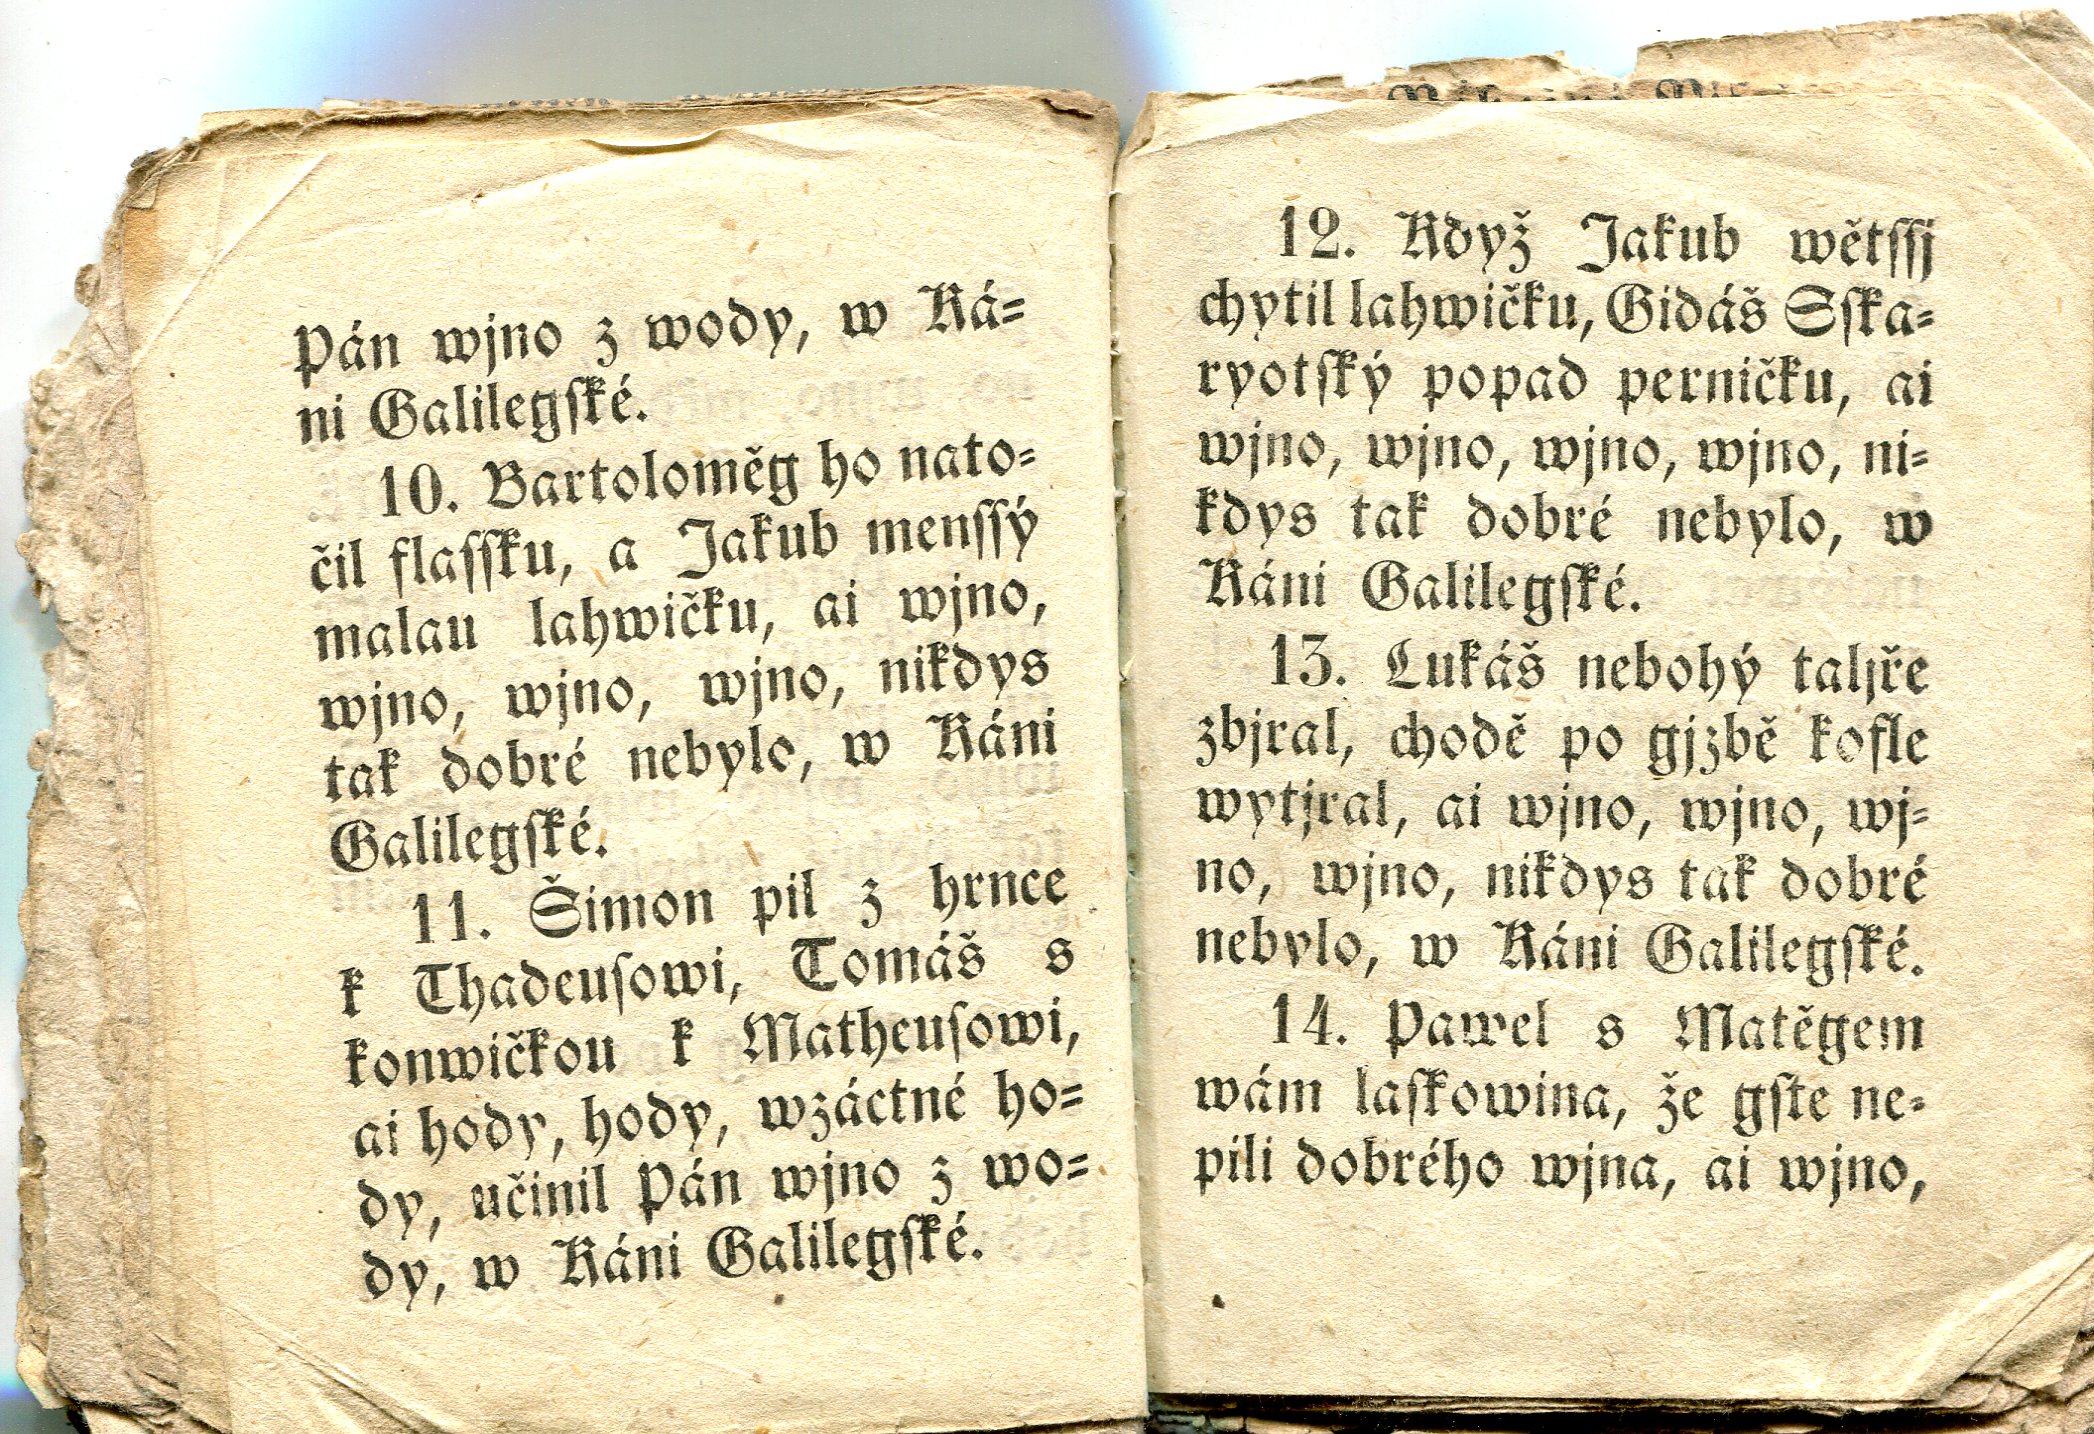 Pán wjno z wody, w Ká=
ni Galilegſké.
10. Bartoloměg ho nato=
čil flaſſku, a Jakub menſſý
malau lahwičku, ai wjno,
wjno, wjno, wjno, nikdys
tak dobré nebylo, w Káni
Galilegſké.
11. Šimon pil z hrnce
k Thadeuſowi, Tomáš s
konwičkou k Matheuſowi,
ai hody, hody, wzáctné ho=
dy, učinil Pán wjno z wo=
dy, w Káni Galilegſké.
12. Když Jakub wětſſj
chytil lahwičku, Gidáš Sſka=
ryotſký popad perničku, ai
wjno, wjno, wjno, wjno, ni=
kdys tak dobré nebylo, w
Káni Galilegſké.
13. Lukáš nebohý taljře
zbjral, chodě po gjzbě kofle
wytjral, ai wjno, wjno, wj=
no, wjno, nikdys tak dobré
nebylo, w Káni Galilegſké.
14. Pawel s Matěgem
wám laſkowina, že gſte ne=
pili dobrého wjna, ai wjno,